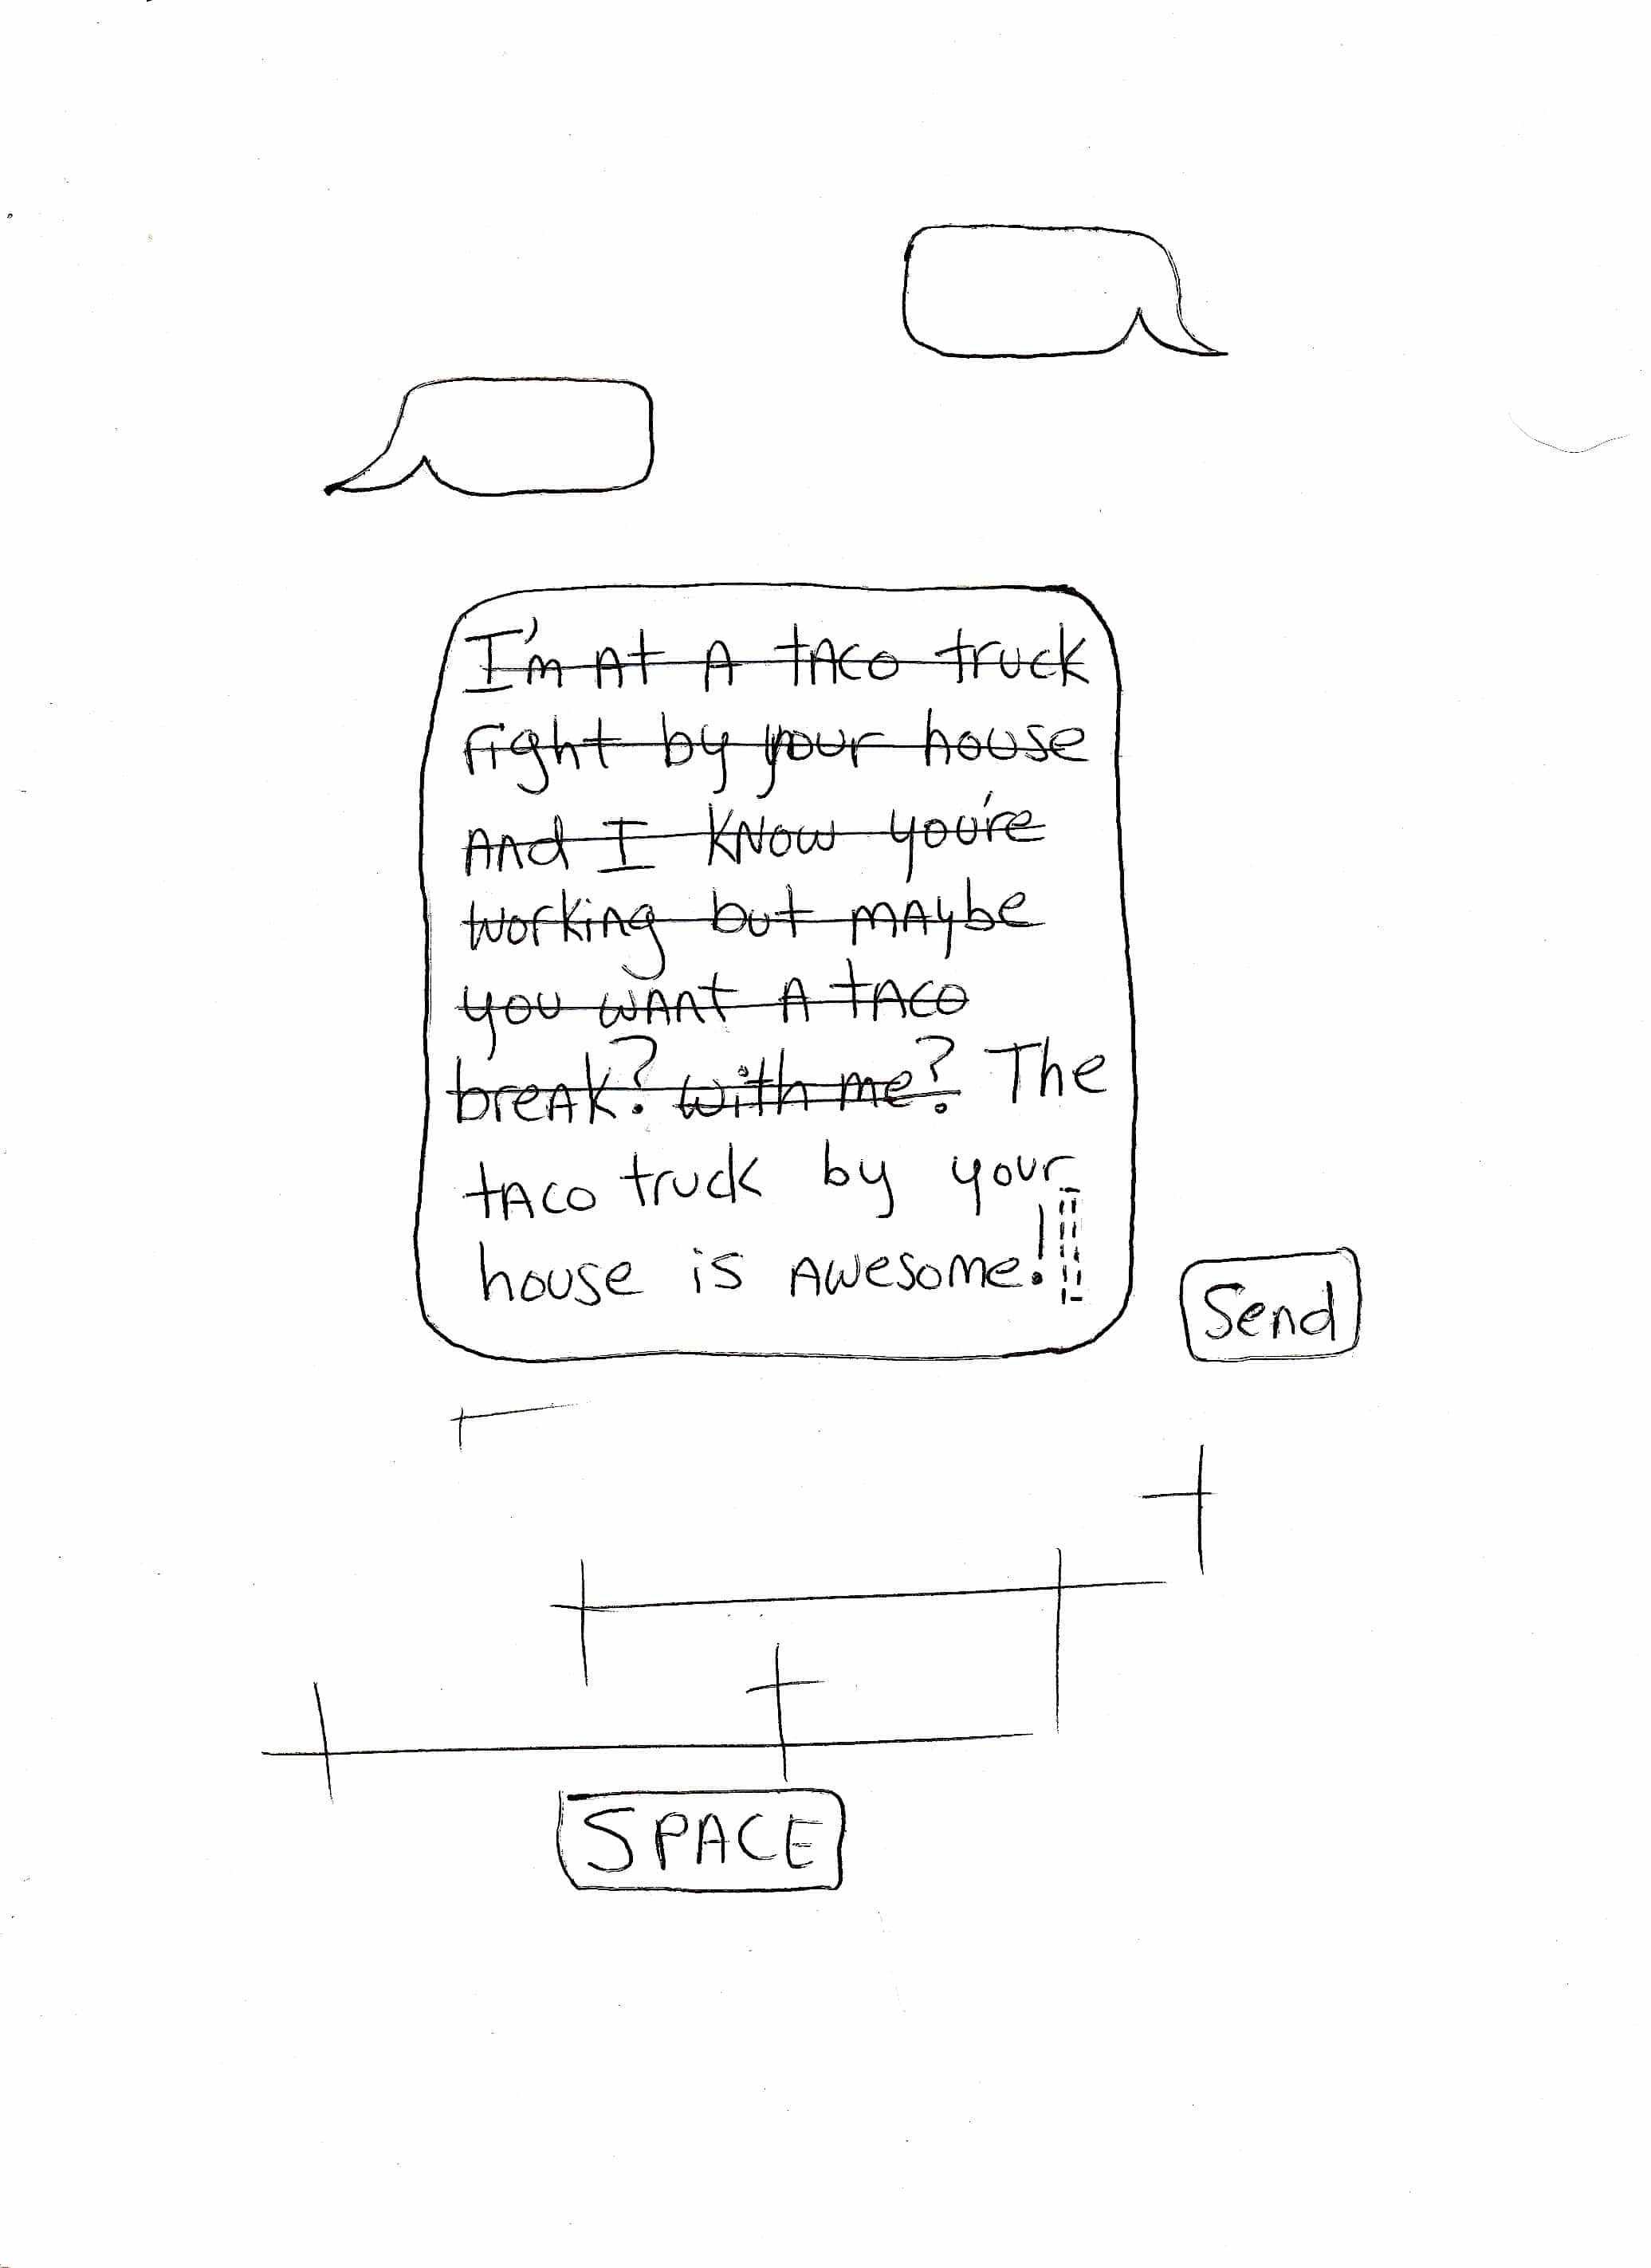 I'm at a taco truck
right by your house
and I know you're
working but maybe
you want a taco
break? with me? The
taco truck by your
house is awesome!
Send
SPACE